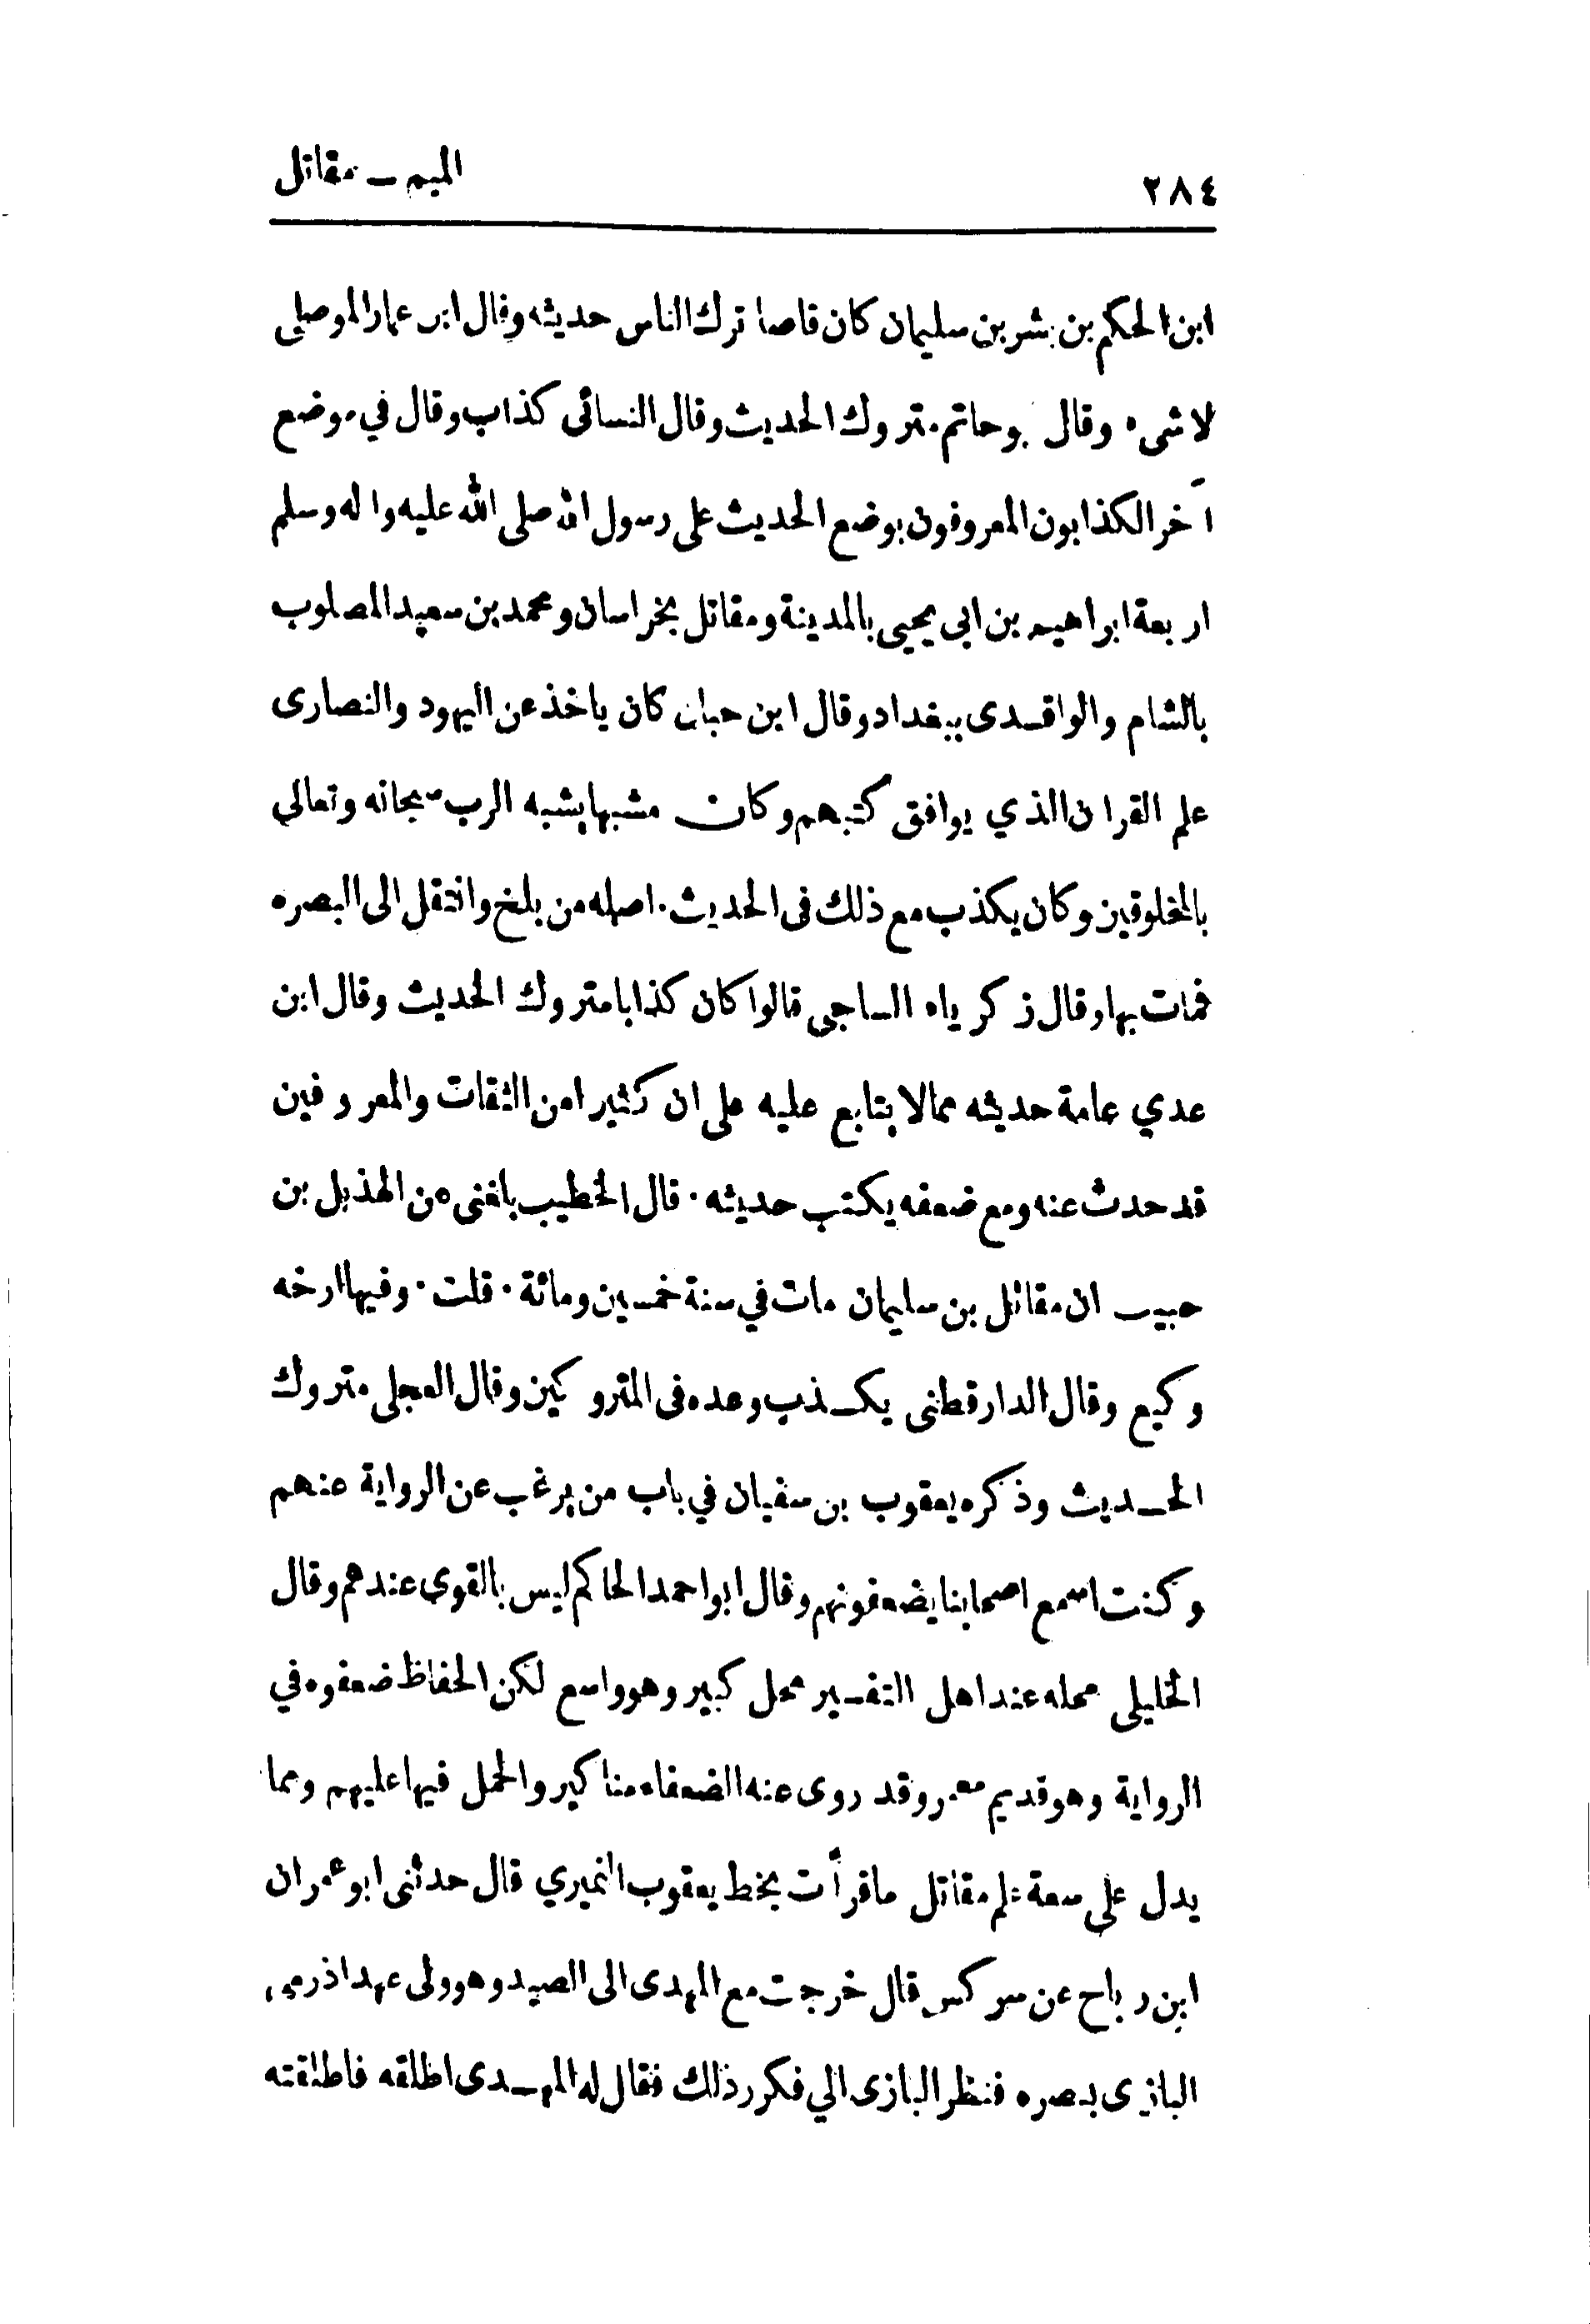 ٢٨٤
الميم ــ مقاتل
ابن الحكم بن بشر بن سليمان كان قاصا ترك الناس حديثه وقال ابن عمار الموصلى
لاشىء وقال ابوحاتم متروك الحديث وقال النسائى كذاب وقال في موضع
آخر الكذابون المعروفون بوضع الحديث على رسول الله صلى الله عليه واله وسلم
اربعة ابراهيم بن ابى يحيى بالمدينة ومقاتل بخراسان ومحمد بن سعيد المصلوب
بالشام والواقدى ببغداد وقال ابن حبان كان ياخذ عن اليهود والنصارى
علم القران الذي يوافق كتبهم وكان مشبها يشبه الرب سبحانه وتعالى
بالمخلوقين وكان يكذب مع ذلك فى الحديث. اصله من بلخ وانتقل الى البصره
فمات بها وقال زكرياء الساجى قالوا كان كذابا متروك الحديث وقال ابن
عدي عامة حديثه ممالا يتابع عليه على ان كثيرا من الثقات والمعروفين
قد حدث عنه ومع ضعفه يكتب حديثه. قال الخطيب بلغنى عن الهذيل بن
حبيب ان مقاتل بن سليمان مات في سنة خمسين ومائة. قلت. وفيها ارخه
وكيع وقال الدارقطنى يكذب وعده فى المتروكين وقال العجلى متروك
الحديث وذكره يعقوب بن سفيان في باب من يرغب عن الرواية عنهم
وكنت اسمع اصحابنا يضعفونهم وقال ابو احمد الحاكم ليس بالقوى عندهم وقال
الخليلى محله عند اهل التفسير محل كبير وهو واسع لكن الحفاظ ضعفوه في
الرواية وهو قديم معمر وقد روى عنه الضعفاء مناكير والحمل فيها عليهم ومما
يدل على سعة علم مقاتل ماقرأت بخط يعقوب النميري قال حدثنى ابو عمران
ابن رباح عن سركس قال خرجت مع المهدى الى الصيد وهو ولى عهد اذ رمى
البازى بصره فنظر البازى الي فكرر ذلك فقال له المهدى اطلقه فاطلقته